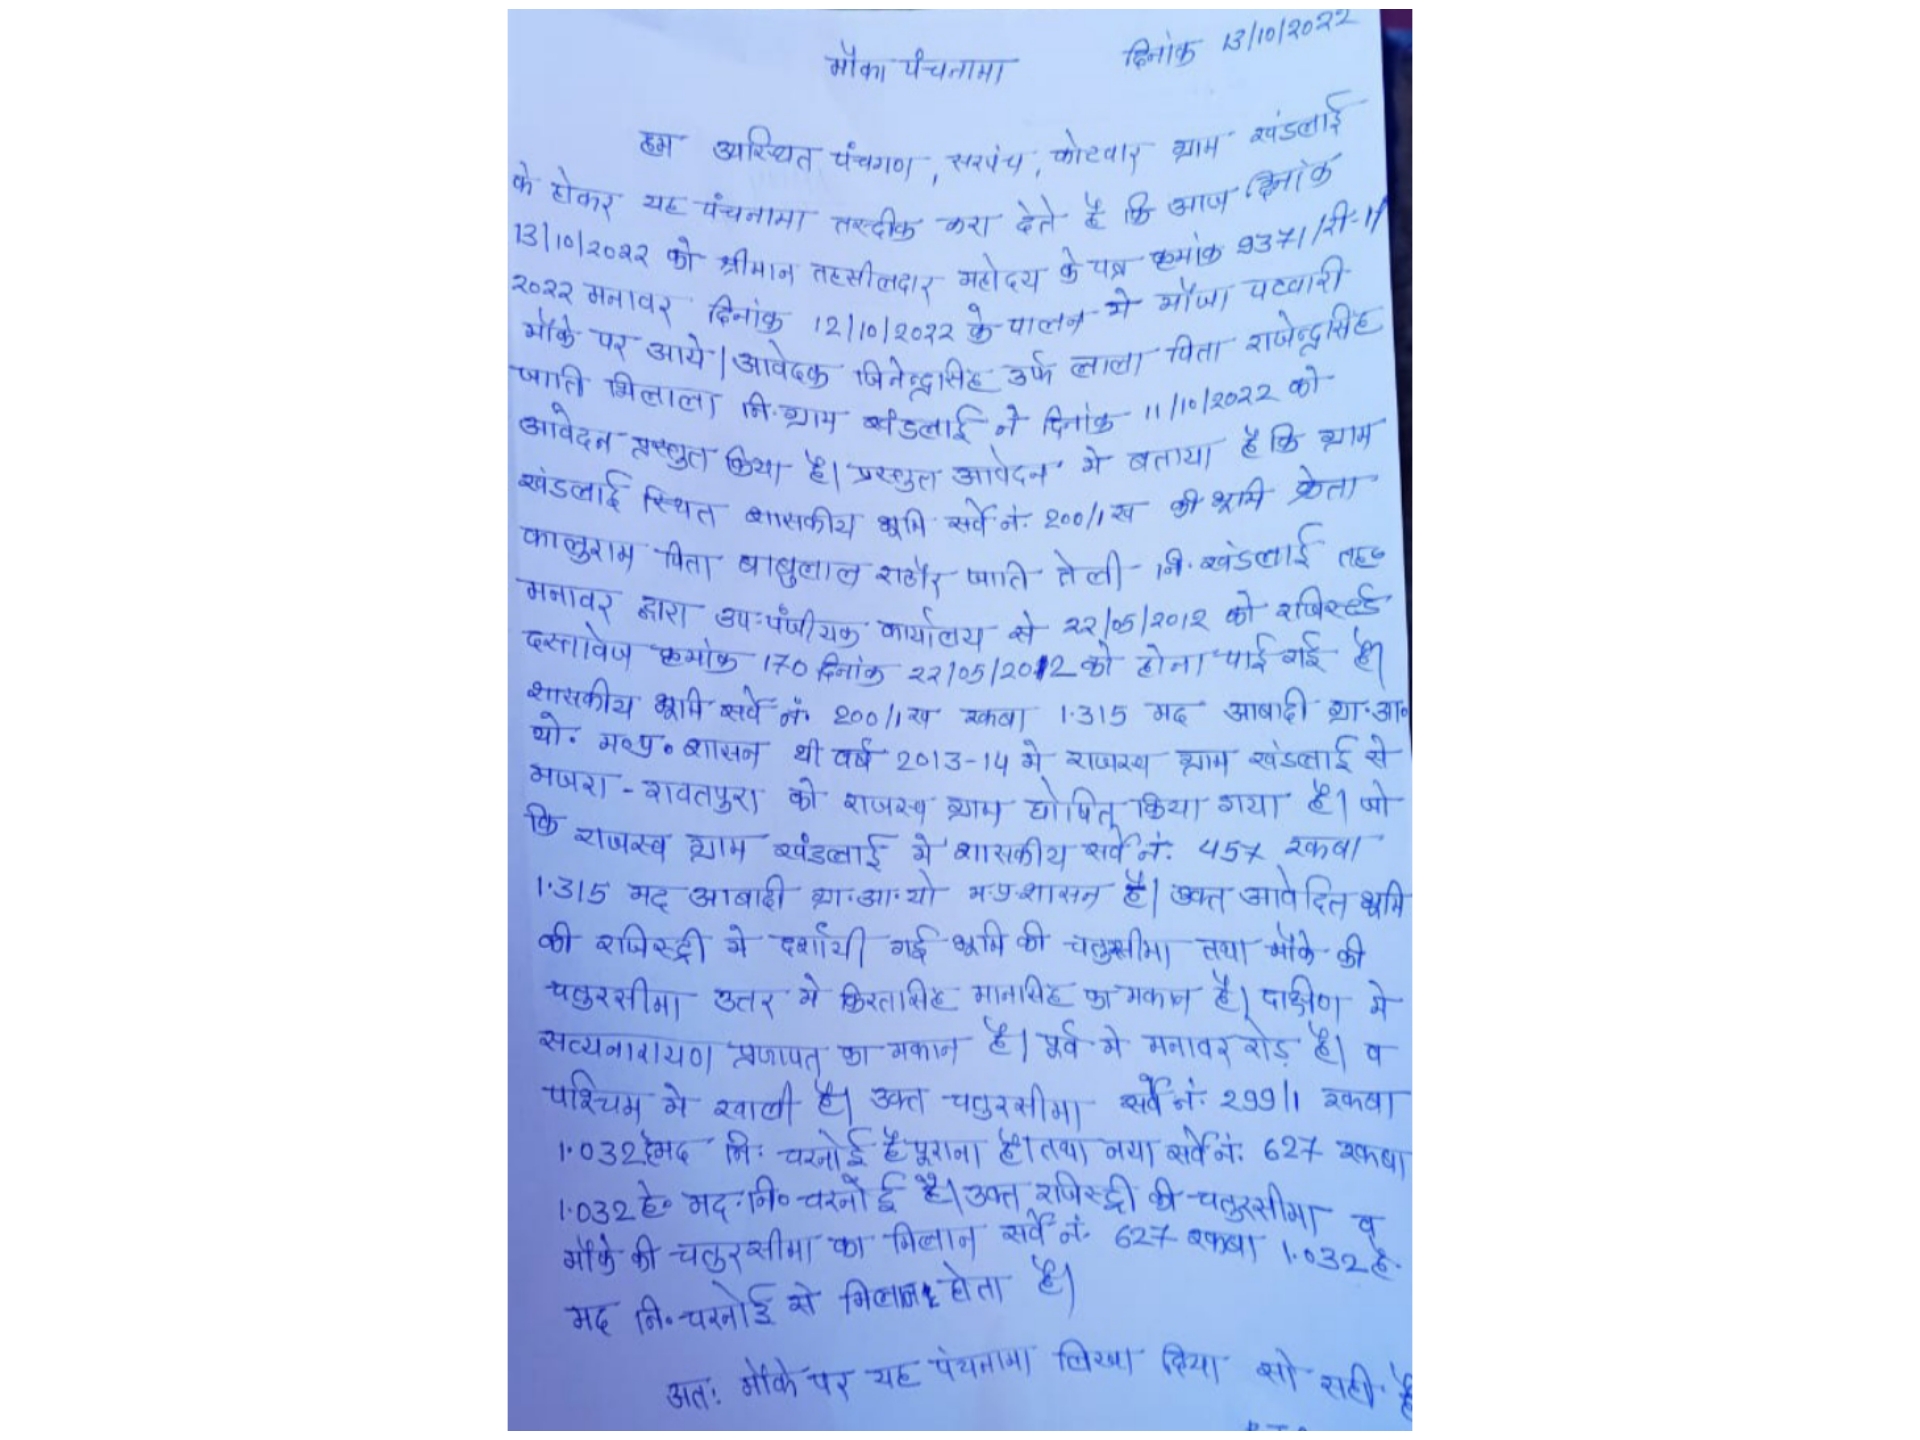 मौका पंचनामा दिनांक 13/10/2022
हम उपस्थित पंचगण, सरपंच, कोटवार ग्राम खंडलाई
के होकर यह पंचनामा तस्दीक करा देते है कि आज दिनांक
13/10/2022 को श्रीमान तहसीलदार महोदय के पत्र क्रमांक 9371/री-1/
2022 मनावर दिनांक 12/10/2022 के पालन मे मौजा पटवारी
मौके पर आये। आवेदक जितेन्द्रसिंह उर्फ लाला पिता राजेन्द्रसिंह
जाति भिलाला नि. ग्राम खंडलाई ने दिनांक 11/10/2022 को
आवेदन प्रस्तुत किया है। प्रस्तुत आवेदन मे बताया है कि ग्राम
खंडलाई स्थित शासकीय भूमि सर्वे नं. 200/1 ख की भूमि क्रेता
कालुराम पिता बाबुलाल राठौर जाति तेली नि. खंडलाई तह०
मनावर द्वारा उप-पंजीयक कार्यालय से 22/05/2012 को रजिस्टर्ड
दस्तावेज क्रमांक 170 दिनांक 22/05/2012 को होना पाई गई है।
शासकीय भूमि सर्वे नं. 200/1 ख रकबा 1.315 मद आबादी ग्रा.आ.
यो. म०प्र० शासन थी वर्ष 2013-14 मे राजस्व ग्राम खंडलाई से
मजरा - रावतपुरा को राजस्व ग्राम घोषित किया गया है। जो
कि राजस्व ग्राम खंडलाई मे शासकीय सर्वे नं. 457 रकबा
1.315 मद आबादी ग्रा.आ.यो म.प्र.शासन है। उक्त आवेदित भूमि
की रजिस्ट्री मे दर्शायी गई भूमि की चतुरसीमा तथा मौके की
चतुरसीमा उत्तर मे किरतासिंह मानसिंह का मकान है। दक्षिण मे
सत्यनारायण प्रजापत का मकान है। पूर्व मे मनावर रोड़ है। व
पश्चिम मे खाली है। उक्त चतुरसीमा सर्वे नं. 299/1 रकबा
1.032 हे मद नि. चरनोई है पूराना है। तथा नया सर्वे नं. 627 रकबा
1.032 हे० मद. नि० चरनोई है। उक्त रजिस्ट्री की चतुरसीमा व
मौके की चतुरसीमा का मिलान सर्वे नं. 627 रकबा 1.032 हे.
मद नि० चरनोई से मिलान होता है।
अतः मौके पर यह पंचनामा लिखा दिया सो सही है